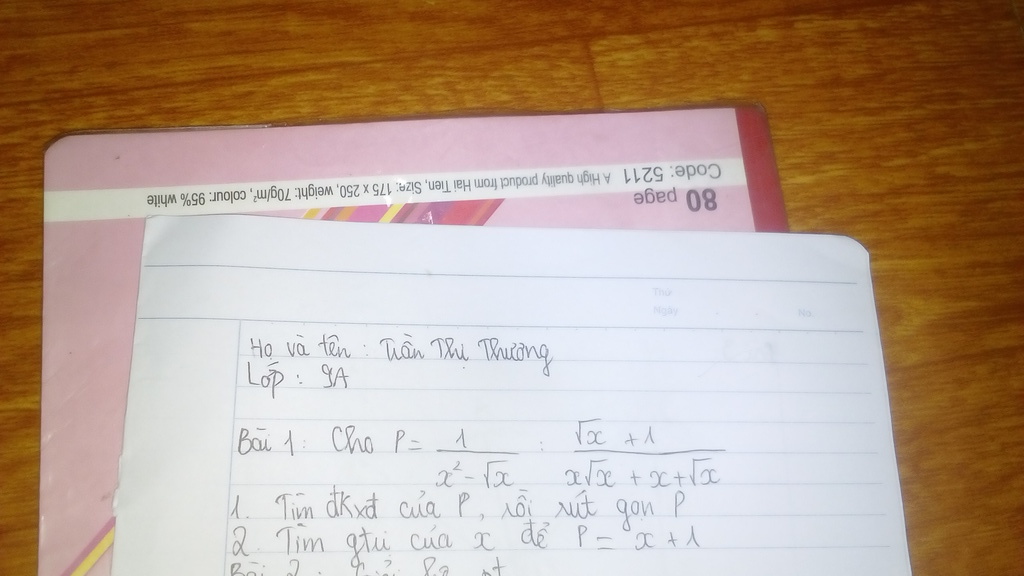 Code: 5211 A High quality product from Hai Tien, Size: 175 x 250, weight: 70g/m², colour: 95% white
80 page
Thứ
Ngày No.
Họ và tên : Trần Thị Thương
Lớp : 9A
Bài 1 : Cho P = 1 / (x² - √x) : (√x + 1) / (x√x + x + √x)
1. Tìm đkxđ của P, rồi rút gọn P
2. Tìm gtrị của x để P = x + 1
Bài 2 :